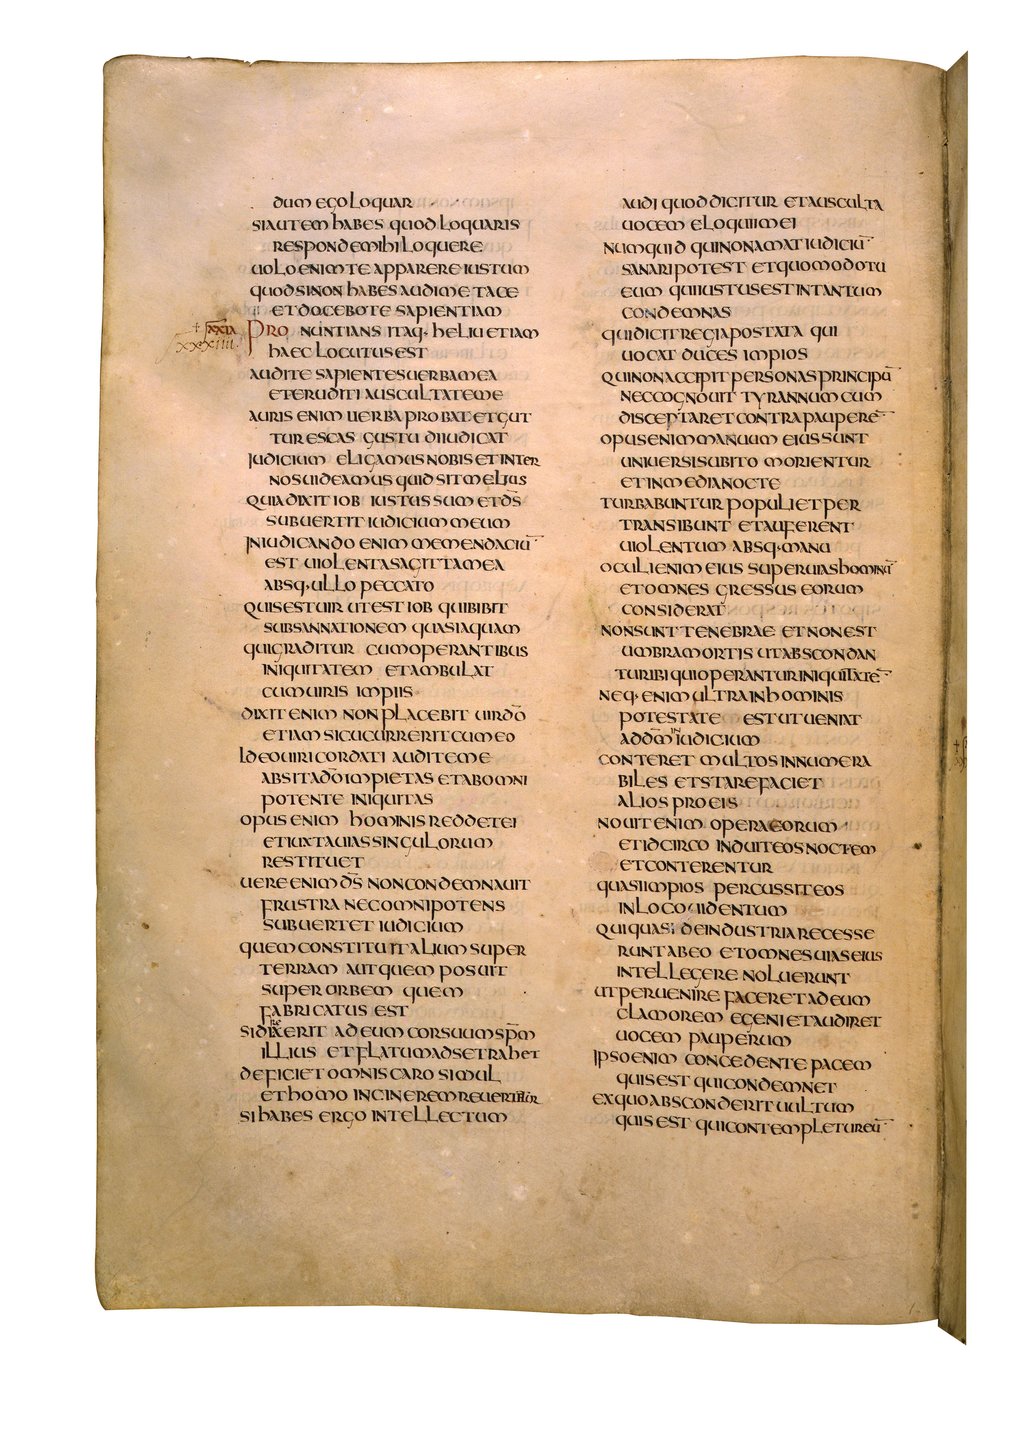 dum ego loquar
si autem habes quod loquaris
responde mihi loquere
uolo enim te apparere iustum
quod si non habes audi me et ace
et docebo te sapientiam
Pronuntians itaq· heliu etiam
haec locutus est
audite sapientes uerba mea
et eruditi auscultate me
auris enim uerba probat et gut
tur escas gustu diiudicat
iudicium eligamus nobis et inter
nos uideamus quid sit melius
quia dixit iob iustus sum et d̄s
subuertit iudicium meum
in iudicando enim me mendaciū
est uiolenta sagitta mea
absq· ullo peccato
quis est uir ut est iob qui bibit
subsannationem quasi aquam
qui graditur cum operantibus
iniquitatem et ambulat
cum uiris impiis
dixit enim non placebit uir d̄o
etiam si cucurrerit cum eo
ideo uiri cordati audite me
absit a d̄o impietas et ab omni
potente iniquitas
opus enim hominis reddet ei
et iuxta uias singulorum
restituet
uere enim d̄s non condemnauit
frustra nec omnipotens
subuertet iudicium
quem constituit alium super
terram aut quem posuit
super orbem quem
fabricatus est
si direxerit ad eum cor suum sp̄m
illius et flatum ad se trahet
deficiet omnis caro simul
et homo in cinerem reuertitur
si habes ergo intellectum
audi quod dicitur et ausculta
uocem eloquii mei
numquid qui non amat iudiciū
sanari potest et quomodo tu
eum qui iustus est in tantum
condemnas
qui dicit regi apostata qui
uocat duces impios
qui non accipit personas principū
nec cognouit tyrannum cum
disceptaret contra pauperē
opus enim manuum eius sunt
uniuersi subito morientur
et in media nocte
turbabuntur populi et per
transibunt et auferent
uiolentum absq· manu
oculi enim eius super uias hominū
et omnes gressus eorum
considerat
non sunt tenebrae et non est
umbra mortis ut abscondan
tur ibi qui operantur iniquitatē
neq· enim ultra in hominis
potestate est ut ueniat
ad d̄m in iudicium
conteret multos innumera
biles et stare faciet
alios pro eis
nouit enim opera eorum
et idcirco induit eos noctem
et conterentur
quasi impios percussit eos
in loco uidentum
qui quasi de industria recesse
runt ab eo et omnes uias eius
intellegere noluerunt
ut peruenire faceret ad eum
clamorem egeni et audiret
uocem pauperum
ipso enim concedente pacem
quis est qui condemnet
ex quo absconderit uultum
quis est qui contempletur eū